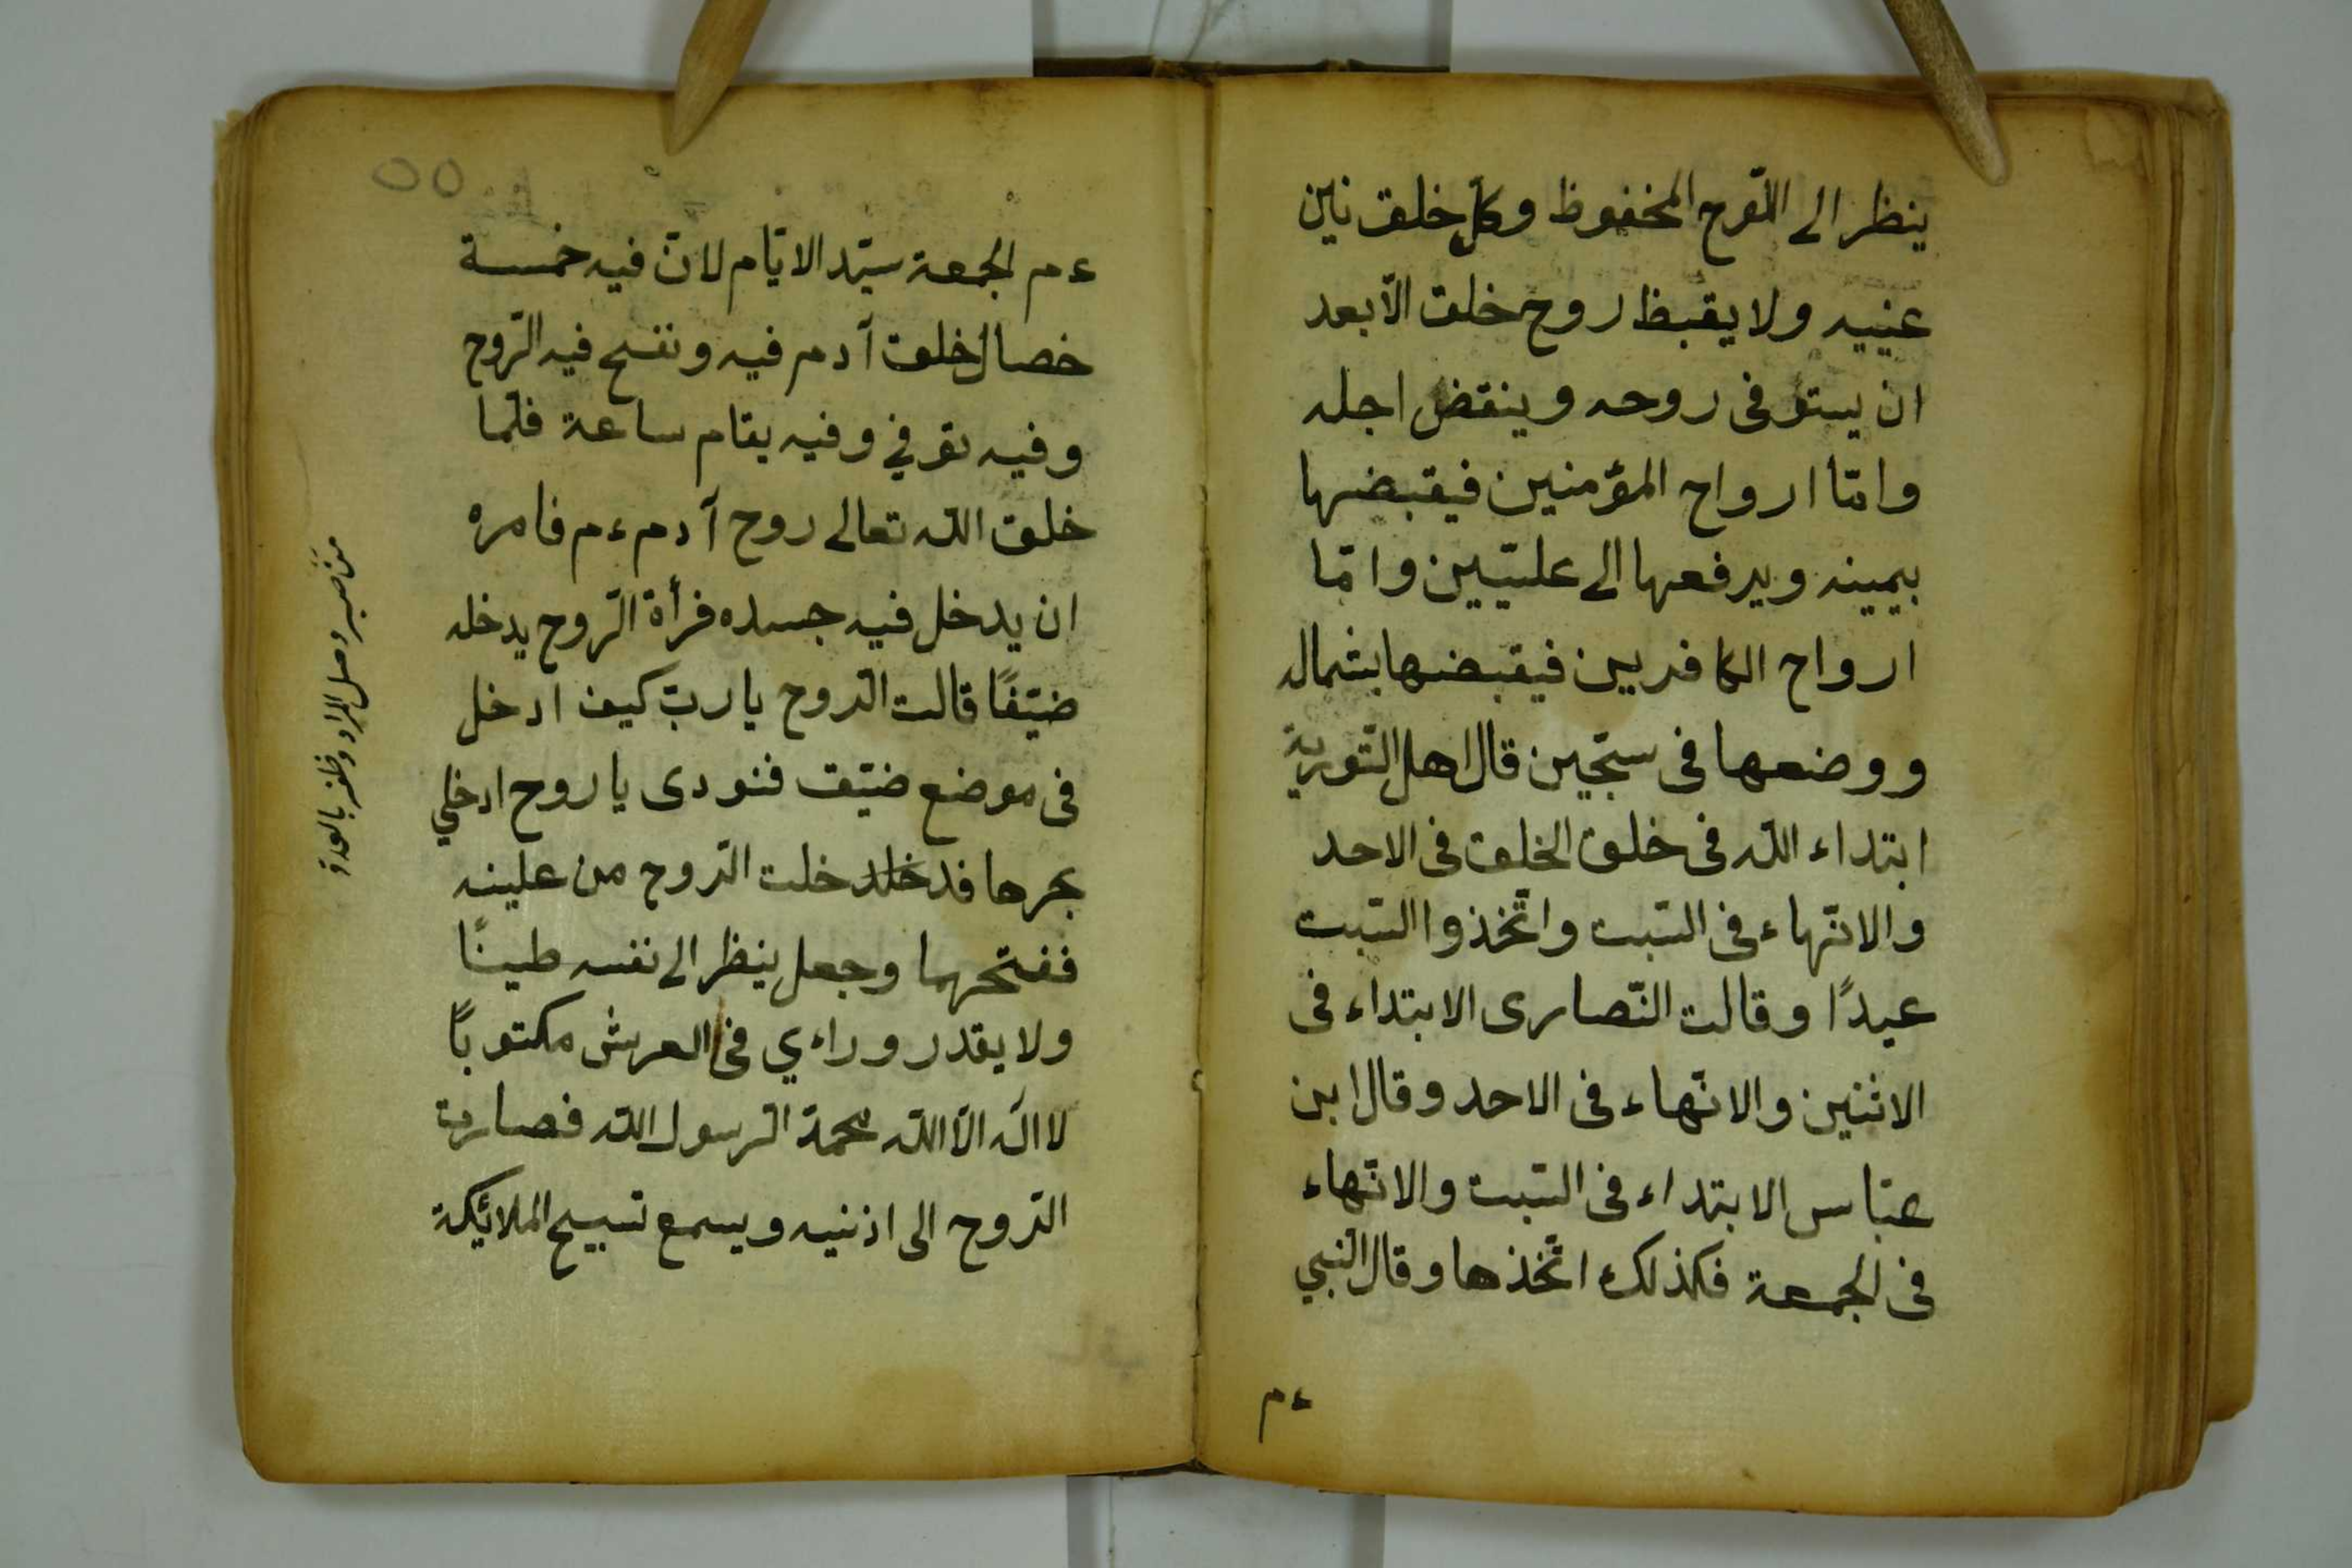 ينظر الى اللّوح المخفوظ وكلّ خلق نين
عنييه ولا يقبظ روح خلق الّا بعد
ان يستوفى روحه وينقض اجله
وامّا ارواح المؤمنين فيقبضها
بيمينه ويرفعها الى علّيّين وامّا
ارواح الكافريين فيقبضها بشماله
ووضعها فى سجّين قال اهل التّورية
ابتداء اللّه فى خلق الخلق فى الاحد
والانتهاء فى السّبت واتّخذوا السّبت
عيدًا وقالت النّصارى الابتداء فى
الاثنين والانتهاء فى الاحد وقال ابن
عبّاس الابتداء فى السّبت والانتهاء
فى الجمعة فكذلك اتّخذها وقال النّبي
ءم
٥٥
ءم الجمعة سيّد الايّام لانّ فيه خمسة
خصال خلق آدم فيه ونفخ فيه الرّوح
وفيه توفي وفيه يقام ساعة فلمّا
خلق اللّه تعالى روح آدم ءم فامره
ان يدخل فيه جسده فرأة الرّوح يدخله
ضيّقًا قالت الرّوح يا ربّ كيف ادخل
فى موضع ضيّق فنودى يا روح ادخلي
بجرها فدخلد خلت الرّوح من علينه
ففتحهما وجعل ينظر الى نفسه طينًا
ولا يقدر وراءي فى العرش مكتوبًا
لا اله الّا اللّه محمّد الرسول اللّه فصارت
الرّوح الى اذنيه ويسمع تسبيح الملائيكة
من صبر وصل المراد وظفر بالعدو